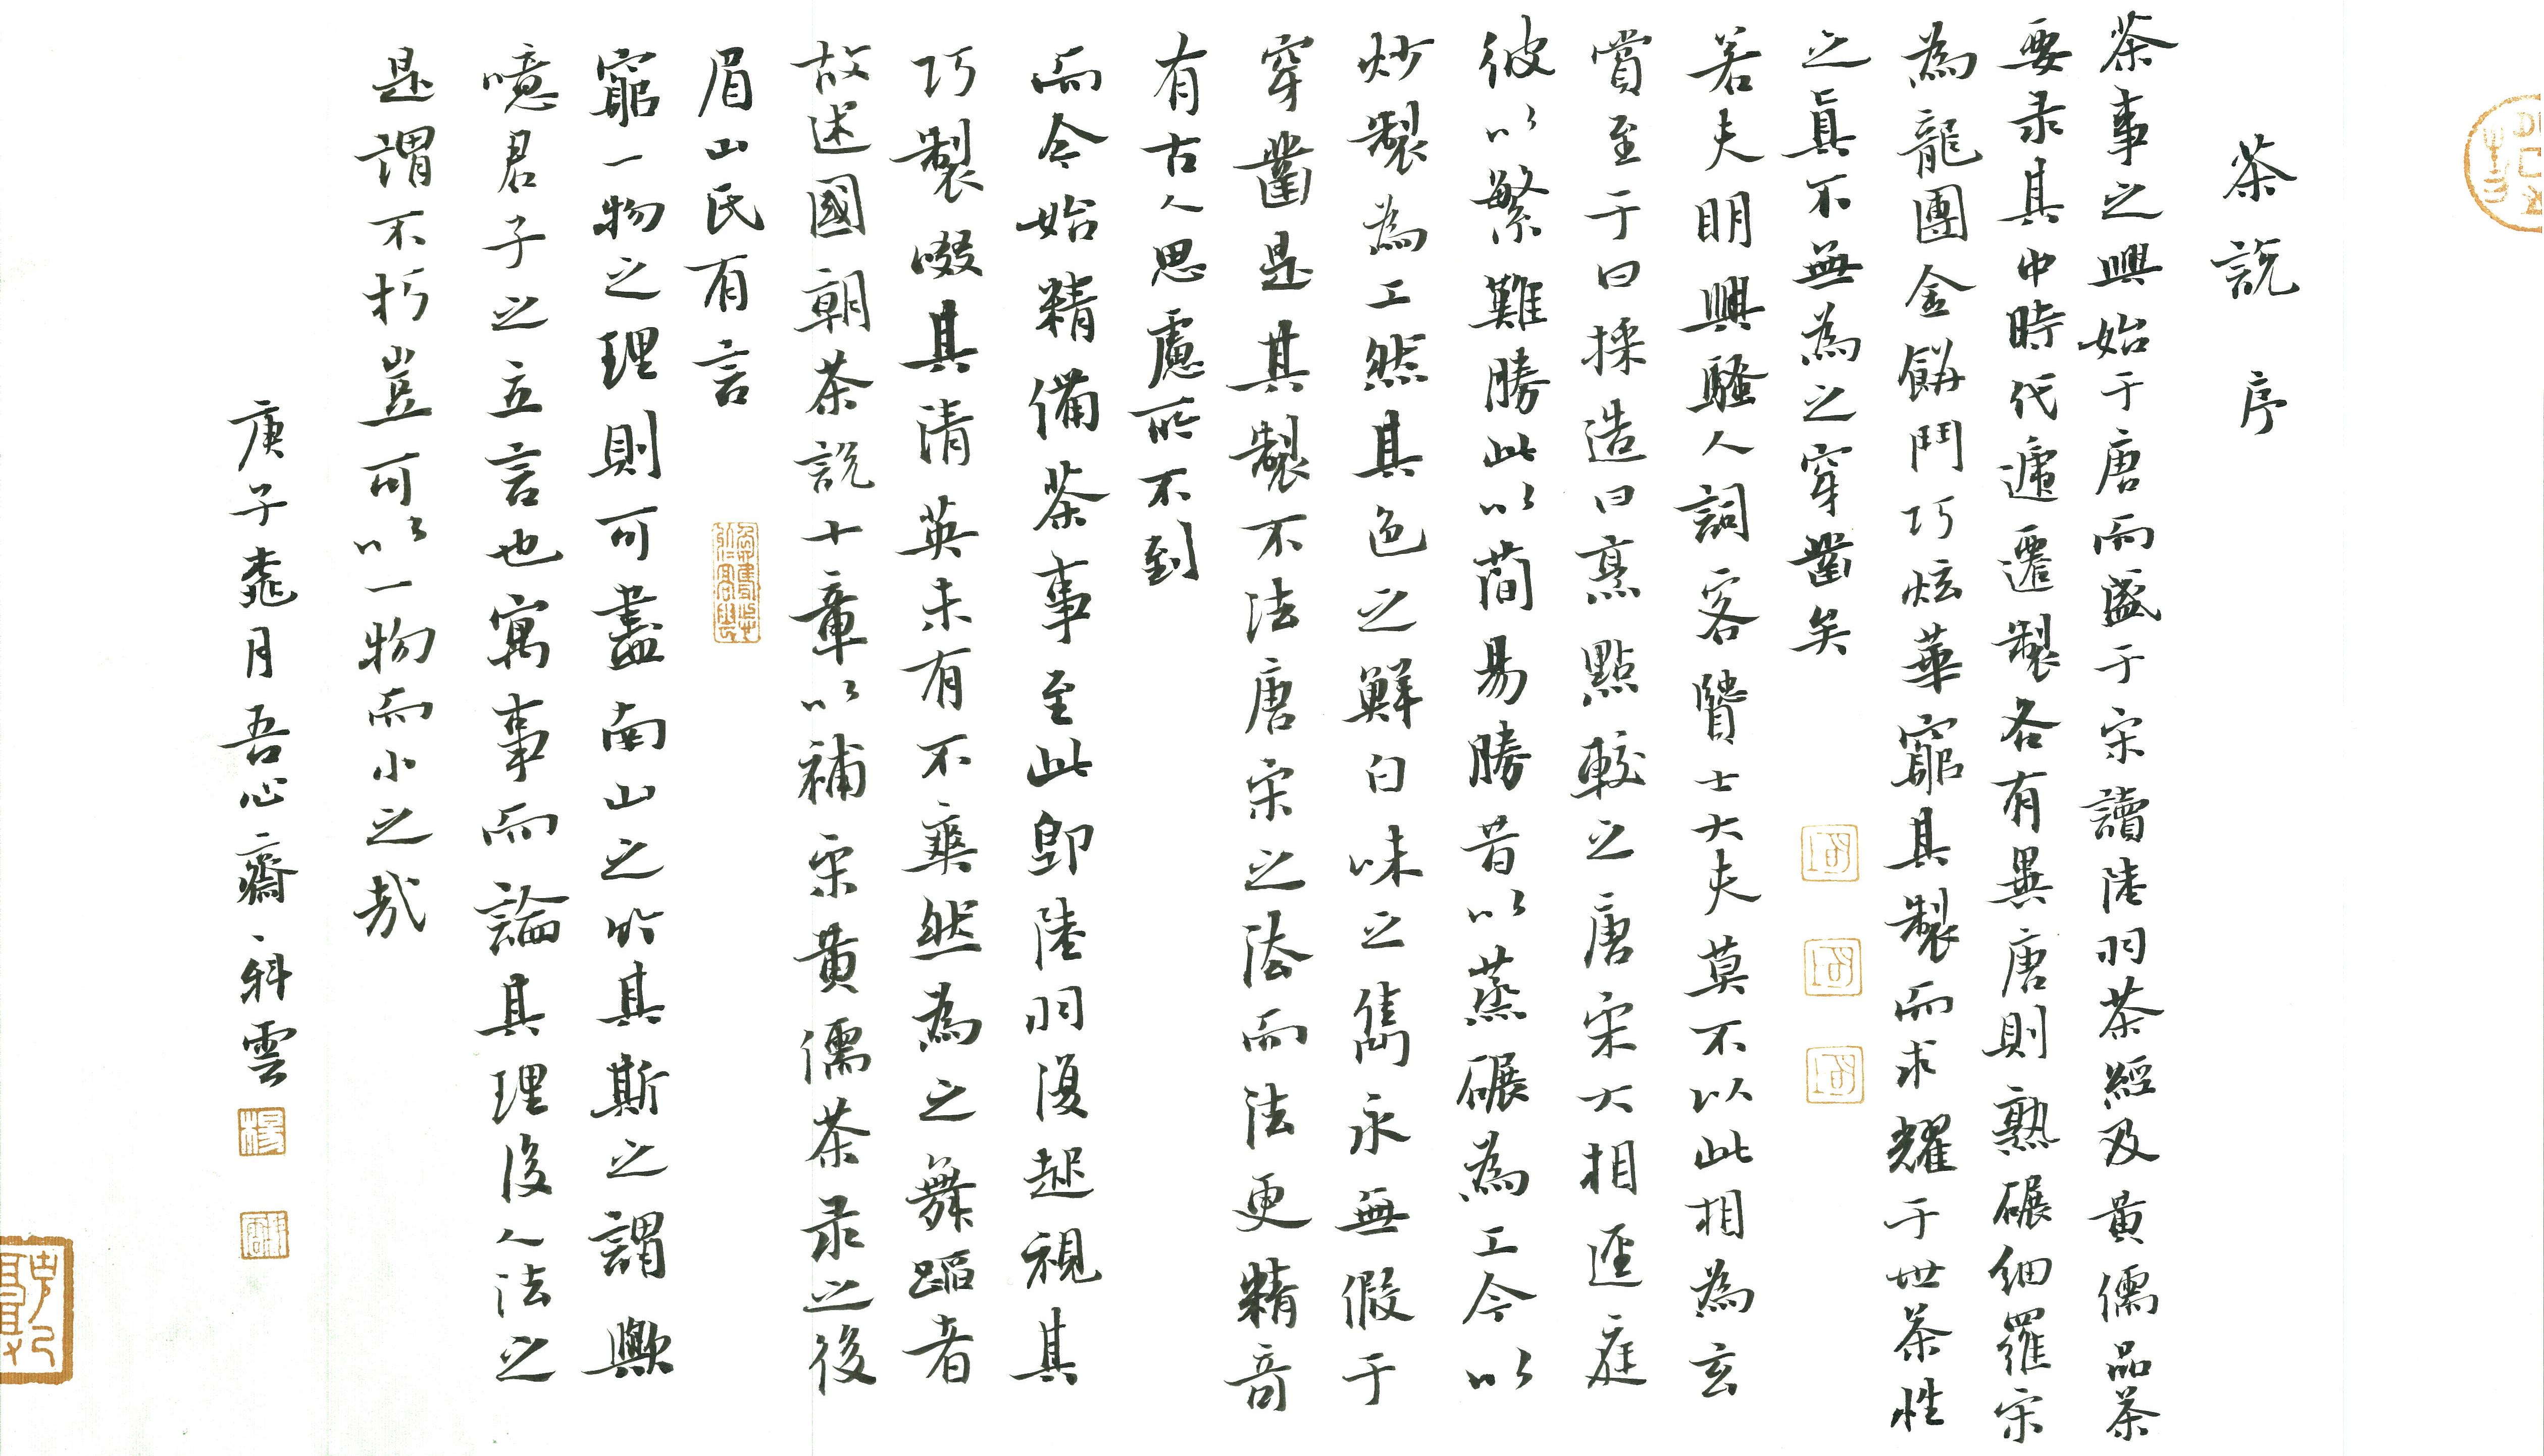 茶說 序
茶事之興始于唐而盛于宋讀陸羽茶經及黃儒品茶
要录其中時代遞遷製各有異唐則熟碾細羅宋
為龍團金餅鬥巧炫華窮其製而求耀于世茶性
之真不無為之穿鑿矣
若夫明興騷人詞客賢士大夫莫不以此相為玄
賞至于曰採造曰烹點較之唐宋大相逕庭
彼以繁難勝此以簡易勝昔以蒸碾為工今以
炒製為工然其色之鮮白味之雋永無假于
穿鑿是其製不法唐宋之法而法更精奇
有古人思慮所不到
而今始精備茶事至此即陸羽復起視其
巧製啜其清英未有不爽然為之舞蹈者
故述國朝茶說十章以補宋黃儒茶录之後
眉山氏有言
窮一物之理則可盡南山之竹其斯之謂歟
噫君子之立言也寓事而論其理後人法之
是謂不朽豈可以一物而小之哉
庚子桃月吾心齋 科雲